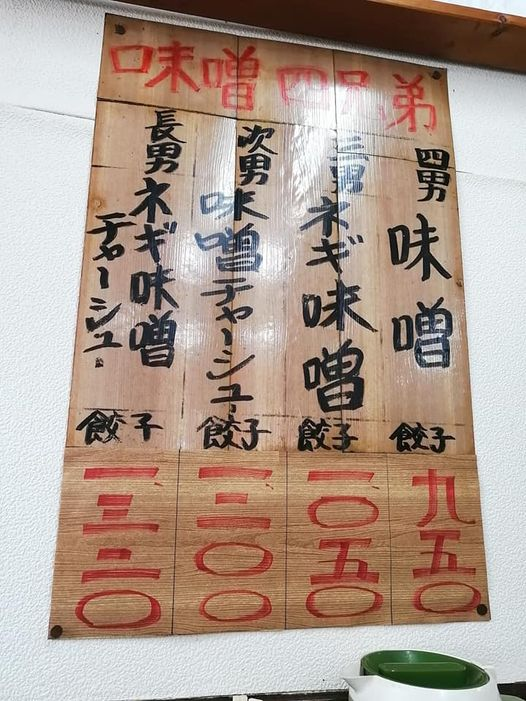 味噌四兄弟
四男 味噌 餃子 九五〇
三男 ネギ味噌 餃子 一〇五〇
次男 味噌チャーシュー 餃子 一二〇〇
長男 ネギ味噌チャーシュー 餃子 一三二〇